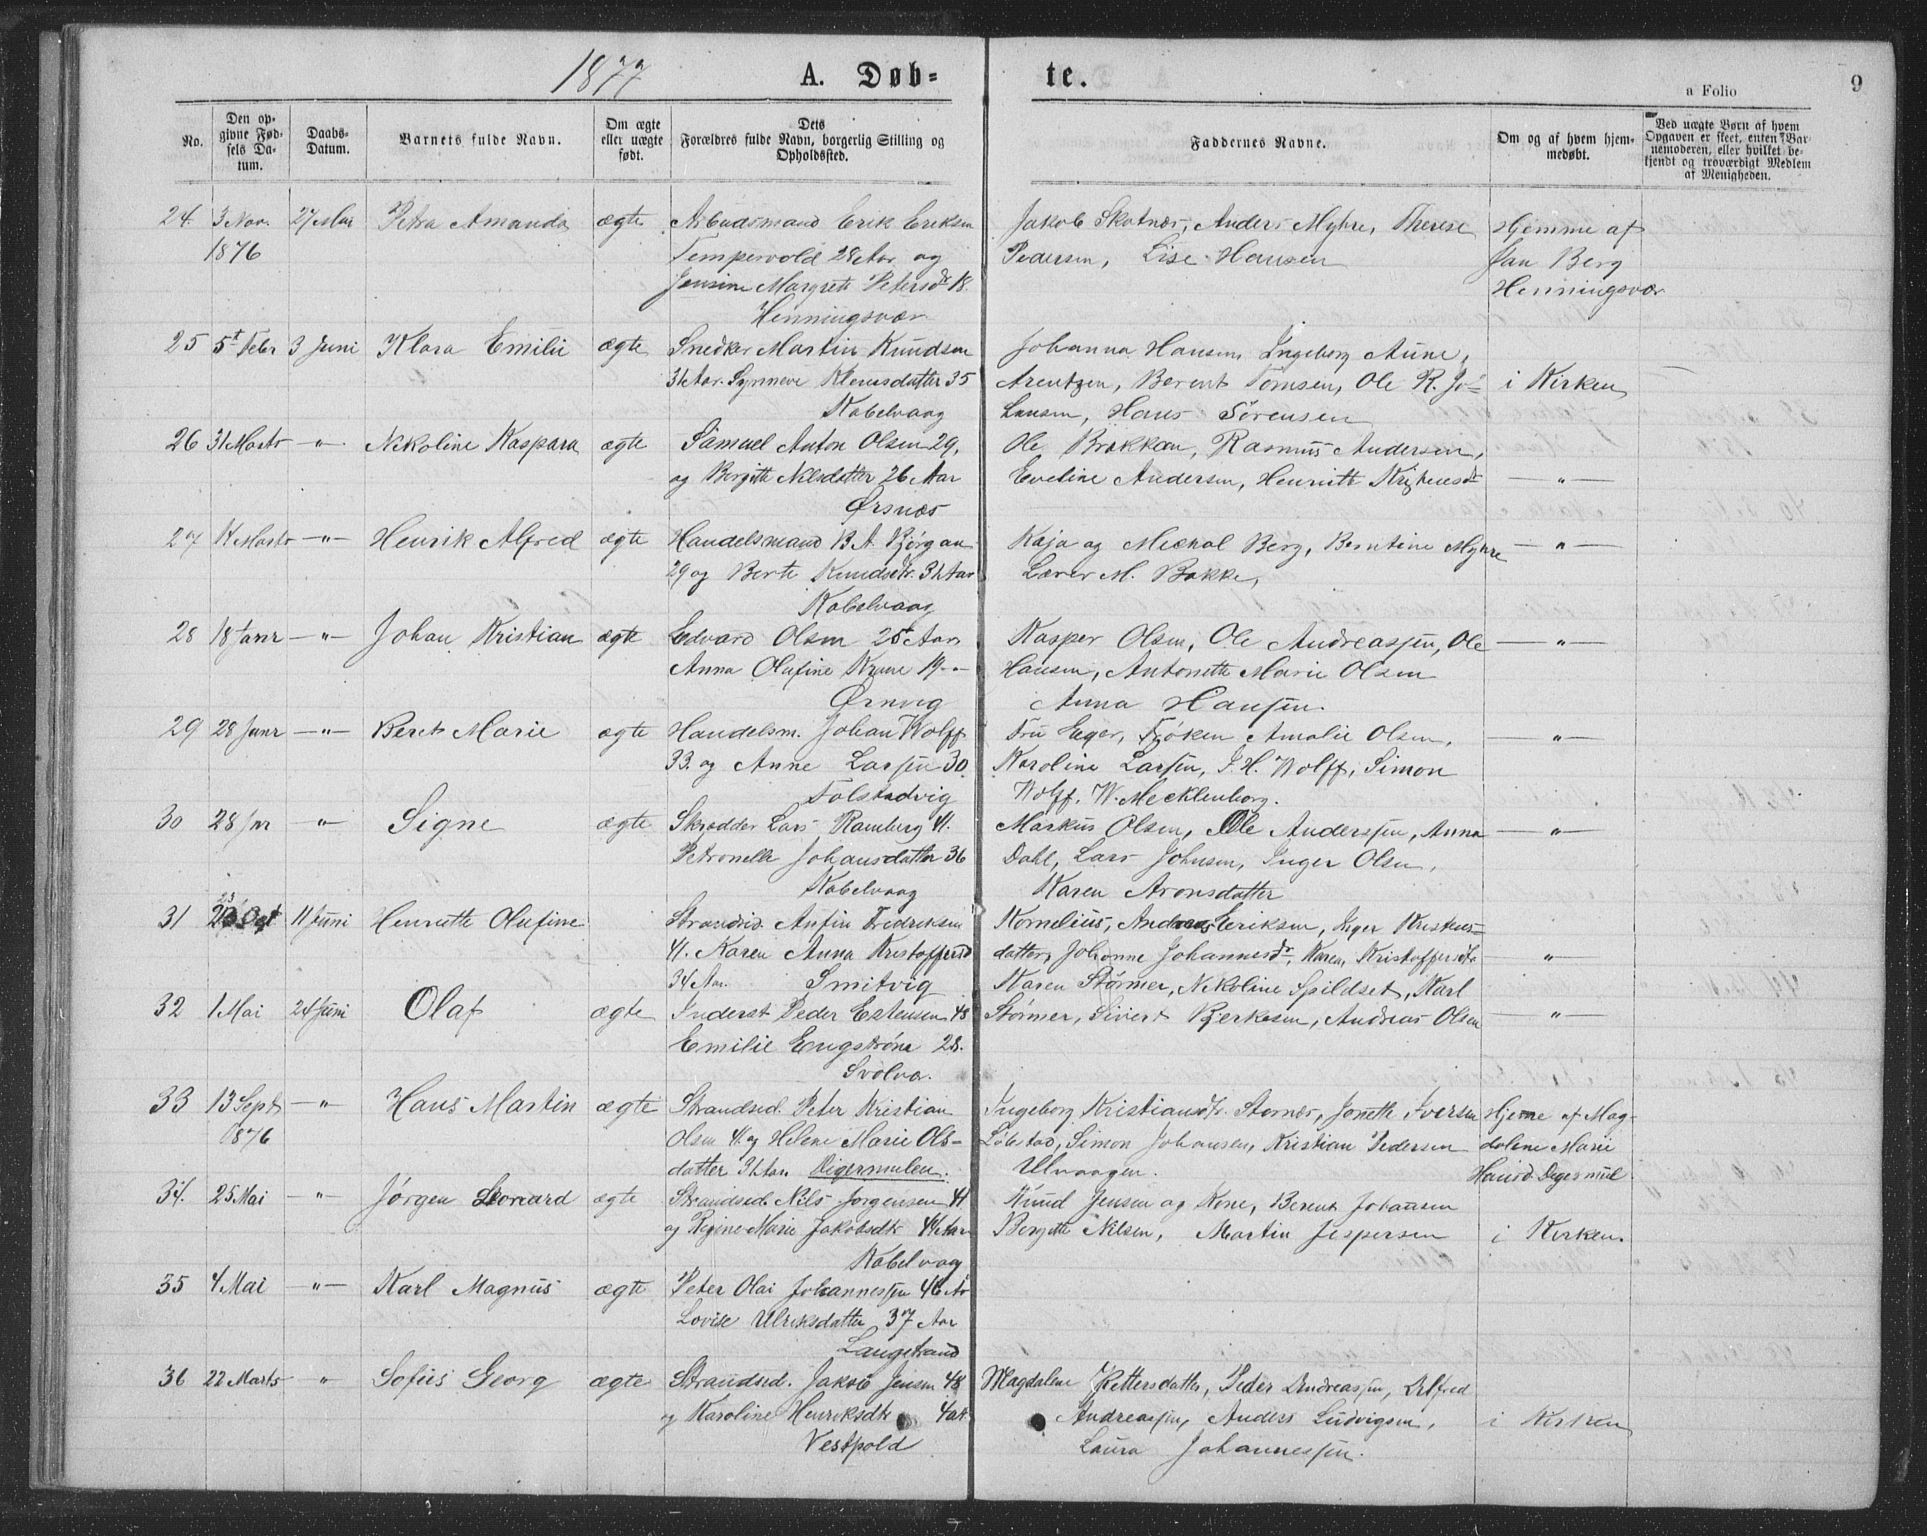 1877 A. Døb= te. a Folio 9
No. Den opgivne Fødsels Datum. Daabs-Datum. Barnets fulde Navn. Om ægte eller uægte født. Dets Forældres fulde Navn, borgerlig Stilling og Opholdssted. Faddernes Navne. Om og af hvem hjemmedøbt. Ved uægte Børn af hvem Opgaven er skeet, enten Barnemoderen, eller hvilket bekjendt og troværdigt Medlem af Menigheden.
24. 3 Nov. 27 Mai Petra Amanda ægte Arbeidsmand Erik Eriksen Jakob Skotnæs, Anders Myhre, Therese Hjemme af
1876 Tempervold 28 Aar og Pedersen, Lise Hansen Jan Berg
Jensine Margrete Petersdr 18. Henningsvær
Henningsvær
25 5t Febr 3 Juni Klara Emilie ægte Snedker Martin Knudsen Johanna Hansen, Ingeborg Aune,
31 Aar. Synneve Klemsdatter 35 Arentzen, Berent Tomsen, Ole R. Jo- i Kirken
Kabelvaag hansen, Hans Sörensen
26 31 Marts -"- Nikoline Kaspara ægte Samuel Anton Olsen 29, Ole Brakken, Rasmus Andersen,
og Bergitte Nilsdatter 26 Aar Eveline Andersen, Henritte -"-
Ørsnæs
27 14 Marts -"- Henrik Alfred ægte Handelsmand B. A. Bjørgan Kaja og Mickal Berg, Berntine Myhre -"-
29 og Berte Knudsdtr. 31 Aar Lærer M. Bakke,
Kabelvaag
28 18 Janr -"- Johan Kristian ægte Edvard Olsen 25 Aar Kasper Olsen, Ole Andreassen, Ole -"-
Anna Olufine Krane 19 -"- Hansen, Antonette Marie Olsen
Ørnvig Anna Hansen.
29 28 Janr -"- Beret Marie ægte Handelsm. Johan Wolff Fru Eger, Frøken Amalie Olsen, -"-
33. og Anne Larsen 30. Karoline Larsen, J. H. Wolff, Simon
Folstadvig Wolff, W. Mecklenborg.
30 28 Jnr -"- Signe ægte Skrædder Lars Ramberg 41. Markus Olsen, Ole Anderssen, Anna -"-
Petronelle Johansdatter 36 Dahl, Lars Johnsen, Inger Olsen,
Kabelvaag Karen Aronsdatter
23
31 11 Juni Henriette Olufine Strandsid. Anfin Fredriksen Kornelius, Andreas Eriksen, Inger Kristens-
41. Karen Anna Kristoffersd datter, Johanne Johannesdr, Karen Kristoffersda -"-
34 Aar. Smitvig Karen Størmer, Nikoline Spildset, Karl
32 1 Mai 24 Juni Olaf ægte Inderst Peder Estensen 48 Størmer, Sivert Bjerkesen, Andreas Olsen -"-
Emilie Engstrøm 28.
Svolvær.
33 13 Sept -"- Hans Martin ægte Strandsid. Peter Kristian Ingeborg Kristiansdr. Stornæs, Jonette Iversen Hjeme af Mag-
1876 Olsen 41. og Helene Marie Ols- Løbstad, Simon Johansen, Kristian Pedersen dalene Marie
datter 31 Aar. Digermulen. Ulvaagen. Hansd. Digermul
34. 25 Mai -"- Jørgen Leonard ægte Strandsid. Nils Jørgensen 41 Knud Jensen og Kone, Berent Johansen
og Regine Marie Jakobsdtr 44 Aar Bergitte Nilsen, Martin Jespersen i Kirken.
Kabelvaag
35 4 Mai -"- Karl Magnus ægte Peter Olai Johannessen 46 Ar
Lovise Ulriksdatter 37 Aar
Langstrand
36 22 Marts " Sofus Georg ægte Strandsid. Jakob Jensen 48 Magdalene Pettersdatter, Peder Andreassen, Alfred
og Karoline Henriksdtr Andreassen, Anders Ludvigsen, i Kirken
Vestpold Laura Johannessen.